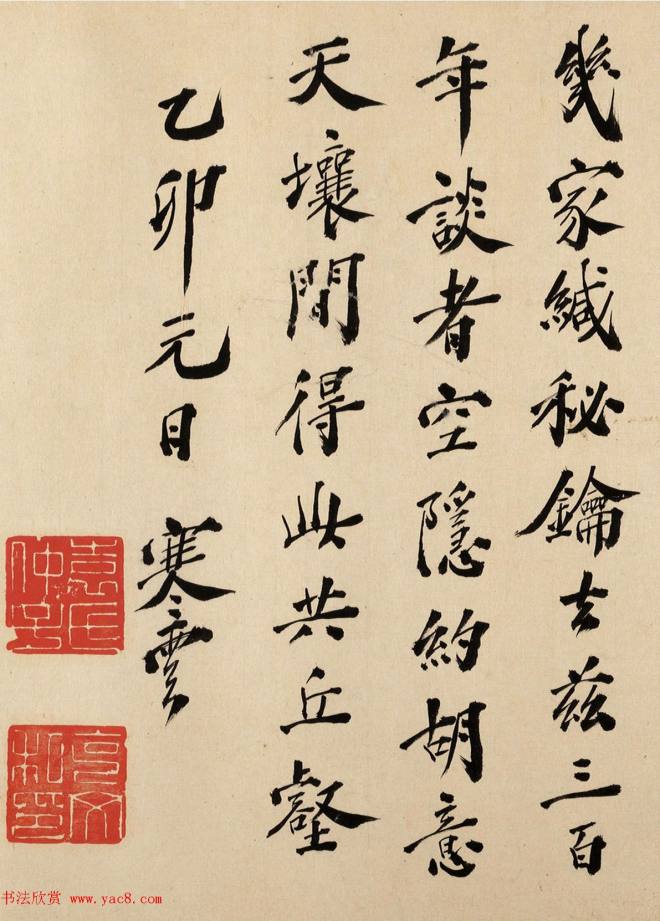 幾家緘秘鑰去茲三百
年談者空隱約胡意
天壤間得此共丘壑
乙卯元日 寒雲
书法欣赏 www.yac8.com